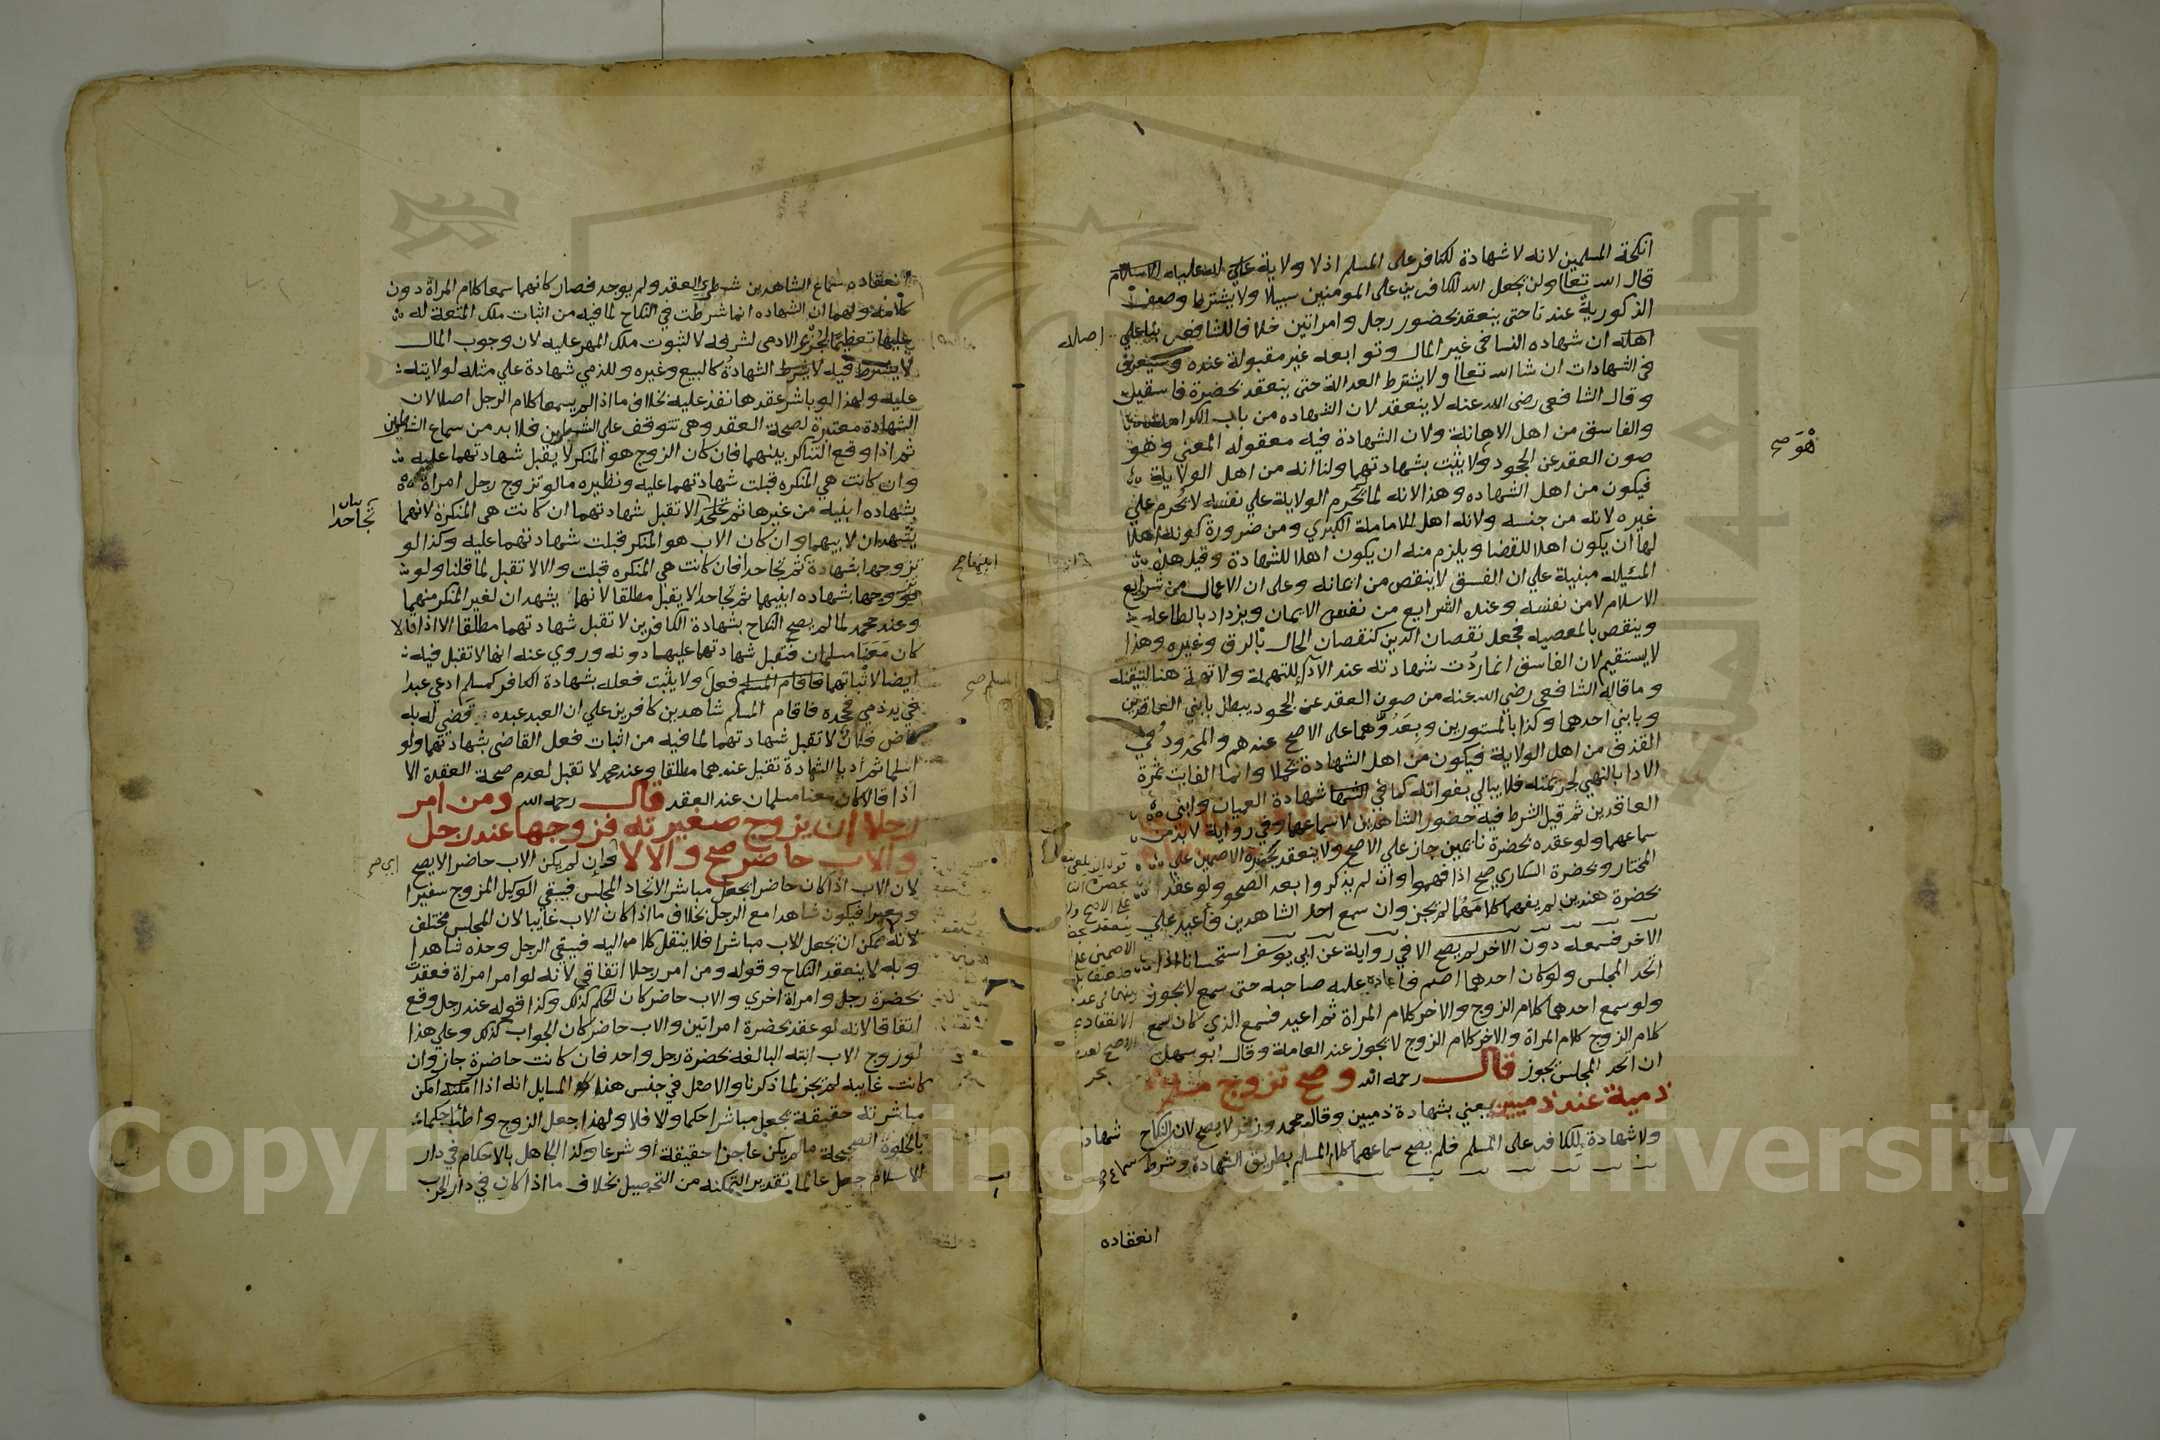 انكحة المسلمين لانه لا شهادة للكافر على المسلم اذ لا ولاية
قال الله تعالى ولن يجعل الله للكافرين على المومنين سبيلا ولا يشترط وصف
الذكورية عندنا حتى ينعقد بحضور رجل وامراتين خلافا للشافعي بنا على
اصله ان شهاده النسا في غير المال وتوابعه غير مقبولة عنده وستعرف
في الشهادات ان شا الله تعالى ولا يشترط العدالة حتى ينعقد بحضرة فاسقين
وقال الشافعي رضي الله عنه لا ينعقد لان الشهاده من باب الكرامة
والفاسق من اهل الاهانة ولان الشهادة فيه معقوله المعنى وهو
صون العقد عن الجحود ولا يثبت بشهادتهما ولنا انه من اهل الولاية
فيكون من اهل الشهاده وهذا لانه لما لم يحرم الولاية علي نفسه لا يحرم علي
غيره لانه من جنسه ولانه اهل للامامة الكبري ومن ضرورة كونه اهلا
لها ان يكون اهلا للقضا ويلزم منه ان يكون اهلا للشهادة وقيل هذه
المسئيله مبنية علي ان الفسق لا ينقص من ايمانه وعلى ان الاعمال من شرايع
الاسلام لا من نفسه وعنده الشرايع من نفس الايمان ويزداد بالطاعة
وينقص بالمعصية فجعل نقصان الدين كنقصان الحال بالرق وغيره وهذا
لا يستقيم لان الفاسق انما ردت شهادته عند الادا للتهمة ولا تهمة هنا لتيقنه
وما قاله الشافعي رضي الله عنه من صون العقد عن الجحود يبطل بابني العاقدين
وبابني احدهما وكذا بالمستورين وبعدوهما على الاصح عندهم والمحدود في
القذف من اهل الولاية فيكون من اهل الشهادة تحملا وانما الفايت ثمرة
الادا بالنهي لجريمته فلا يبالي بفواته كما في شهادة العميان وابني
العاقدين ثم قيل الشرط فيه حضور الشاهدين لا سماعهما وفي رواية لا بد من
سماعهما ولو عقده بحضرة نايمين جاز علي الاصح ولا ينعقد بحضرة الاصمين علي
المختار وبحضرة السكاري صح اذا فهموا وان لم يذكروا بعد الصحو ولو عقد
بحضرة هنديين لم يفهما كلامهما لم يجز وان سمع احد الشاهدين فاعيد علي
الاخر فسمعه دون الاخر لم يصح الا في رواية عن ابي يوسف استحسانا اذا
اتحد المجلس ولو كان احدهما اصم فاعاده عليه صاحبه حتى سمع لا يجوز
ولو سمع احدهما كلام الزوج والاخر كلام المراة ثم اعيد فسمع الذي كان سمع
كلام الزوج كلام المراة والاخر كلام الزوج لا يجوز عند العامة وقال ابو سهل
ان اتحد المجلس يجوز قال رحمه الله وصح تزوج مسلم
ذمية عند ذميين يعني بشهادة ذميين وقال محمد وزفر لا يصح لان النكاح
ولا شهادة للكافر على المسلم فلم يصح سماعهما كلام المسلم بطريق الشهادة وشرط
اصله
هو صح
شهادة
سماع
انعقاده
انعقاده سماع الشاهدين شطري العقد ولم يوجد فصار كانهما سمعا كلام المراة دون
كلامه ولهما ان الشهاده انما شرطت في النكاح لما فيه من اثبات ملك المتعة له
عليها تعظيما لجزء الادمي لشرفه لا لثبوت ملك المهر عليه لان وجوب المال
لا يشترط فيه الشهادة كالبيع وغيره وللذمي شهادة علي مثله لولايته
عليه ولهذا لو باشر عقدها نفذ عليه بخلاف ما اذا لم يسمعا كلام الرجل اصلا لان
الشهادة معتبرة لصحة العقد وهي تتوقف علي الشطرين فلا بد من سماع الشطرين
ثم اذا وقع التناكر بينهما فان كان الزوج هو المنكر لا يقبل شهادتهما عليه
وان كانت هي المنكره قبلت شهادتهما عليه ونظيره ما لو تزوج رجل امراة
بشهاده ابنيه من غيرها ثم تجاحدا لا تقبل شهادتهما ان كانت هي المنكرة لانهما
يشهدان لابيهما وان كان الاب هو المنكر قبلت شهادتهما عليه وكذا لو
تزوجها بشهادة ثم تجاحدا فان كانت هي المنكره قبلت والا لا تقبل لما قلنا ولو
تزوجها بشهاده ابنيهما ثم تجاحدا لا يقبل مطلقا لانهما يشهدان لغير المنكر منهما
وعند محمد لما لم يصح النكاح بشهادة الكافرين لا تقبل شهادتهما مطلقا الا اذا قالا
كان معنا مسلمان فتقبل شهادتهما عليها دونه وروي عنه انها لا تقبل فيه
ايضا لاثباتهما فعل ولا يثبت فعله بشهادة الكافر كمسلم ادعي عبدا
في يد ذمي فجحده فاقام المسلم شاهدين كافرين علي ان العبد عبده قضي له به
قاض فلان لا تقبل شهادتهما لما فيه من اثبات فعل القاضي بشهادتهما ولو
اسلما ثم اديا الشهادة تقبل عندهما مطلقا وعند محمد لا تقبل لعدم صحة العقد الا
اذا قالا كان معنا مسلمان عند العقد قال رحمه الله ومن امر
رجلا ان يزوج صغيرته فزوجها عند رجل
والاب حاضر صح والا لا اي وان لم يكن الاب حاضرا لا يصح
لان الاب اذا كان حاضرا يجعل مباشرا لاتحاد المجلس فيبقي الوكيل المزوج سفيرا
ومعبرا فيكون شاهدا مع الرجل بخلاف ما اذا كان الاب غايبا لان المجلس مختلف
لانه يمكن ان يجعل الاب مباشرا فلا ينتقل كلامه اليه فيبقي الرجل وحده شاهدا
وبه لا ينعقد النكاح وقوله ومن امر رجلا اتفاقي لانه لو امر امراة فعقدت
بحضرة رجل وامراة اخري والاب حاضر كان الحكم كذلك وكذا قوله عند رجل وقع
اتفاقا لانه لو عقد بحضرة امراتين والاب حاضر كان الجواب كذلك وعلي هذا
لو زوج الاب ابنته البالغه بحضرة رجل واحد فان كانت حاضرة جاز وان
كانت غايبه لم يجز لما ذكرنا والاصل في جنس هذه المسايل انه اذا امكن
مباشرته حقيقة يجعل مباشرا حكما والا فلا ولهذا جعل الزوج واطئا حكما
بالخلوة الصحيحة ما لم يكن عاجزا حقيقة او شرعا وكذا الجاهل بالاحكام في دار
الاسلام جعل عالما تقديرا لتمكنه من التحصيل بخلاف ما اذا كان في دار الحرب
بيان
تجاحدا
ابنيهما صح
المسلم صح
اي صح